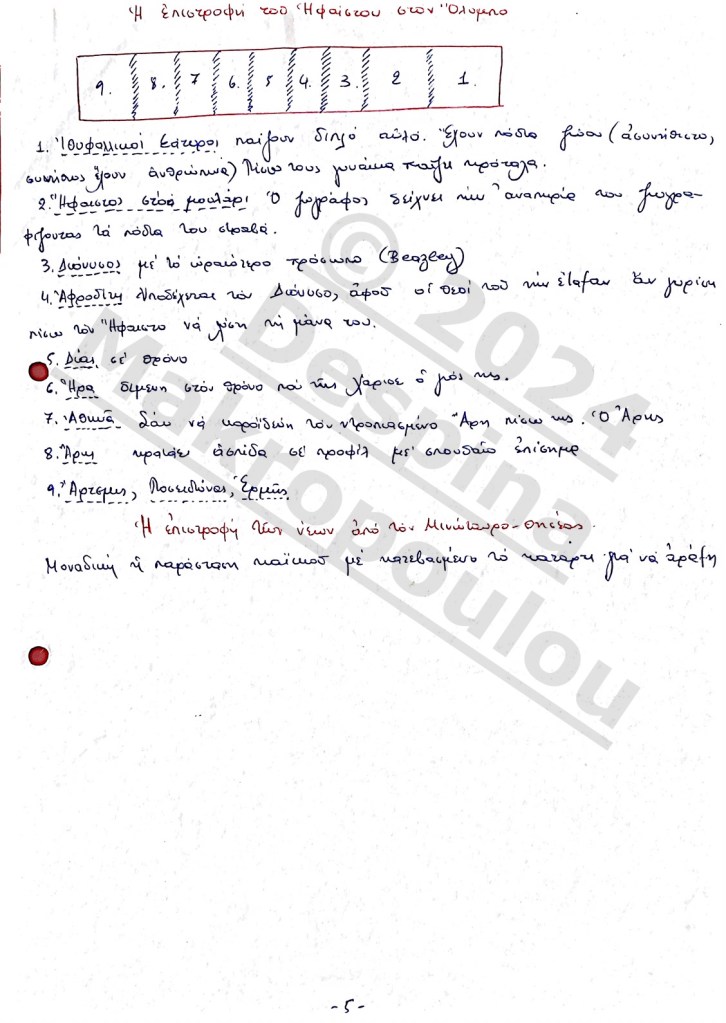 Ἡ ἐπιστροφή τοῦ Ἡφαίστου στόν Ὄλυμπο
9. 8. 7 6. 5 4. 3. 2 1.
1. Ἰθυφαλλικοί Σάτυροι παίζουν διπλό αὐλό. Ἔχουν πόδια ζώου (ἀσυνήθιστο,
συνήθως ἔχουν ἀνθρώπινα) Πίσω τους γυναίκα παίζει κρόταλα.
2. Ἥφαιστος στό μουλάρι Ὁ ζωγράφος δείχνει τήν ἀναπηρία του ζωγρα-
φίζοντας τά πόδια του στραβά.
3. Διόνυσος μέ τό ὡραιότερο πρόσωπο (Beazley)
4. Ἀφροδίτη Ὑποδέχεται τόν Διόνυσο, ἀφοῦ οἱ θεοί τοῦ τήν ἔταξαν ἄν γυρίση
πίσω τόν Ἥφαιστο νά λύση τή μάνα του.
5. Δίας σέ θρόνο
6. Ἥρα δεμένη στόν θρόνο πού τῆς χάρισε ὁ γιός της.
7. Ἀθηνᾶ Σάν νά κοροϊδεύη τόν ντροπιασμένο Ἄρη πίσω της. Ὁ Ἄρης
8. Ἄρης κρατάει ἀσπίδα σέ προφίλ μέ σπουδαῖο ἐπίσημα
9. Ἄρτεμις, Ποσειδώνας, Ἑρμῆς
Ἡ ἐπιστροφή τῶν νέων ἀπό τόν Μινώταυρο-Θησέας.
Μοναδική ἡ παράσταση καϊκιοῦ μέ κατεβασμένο τό κατάρτι γιά νά ἀράξη
© 2024
Despina
Maktropoulou
-5-